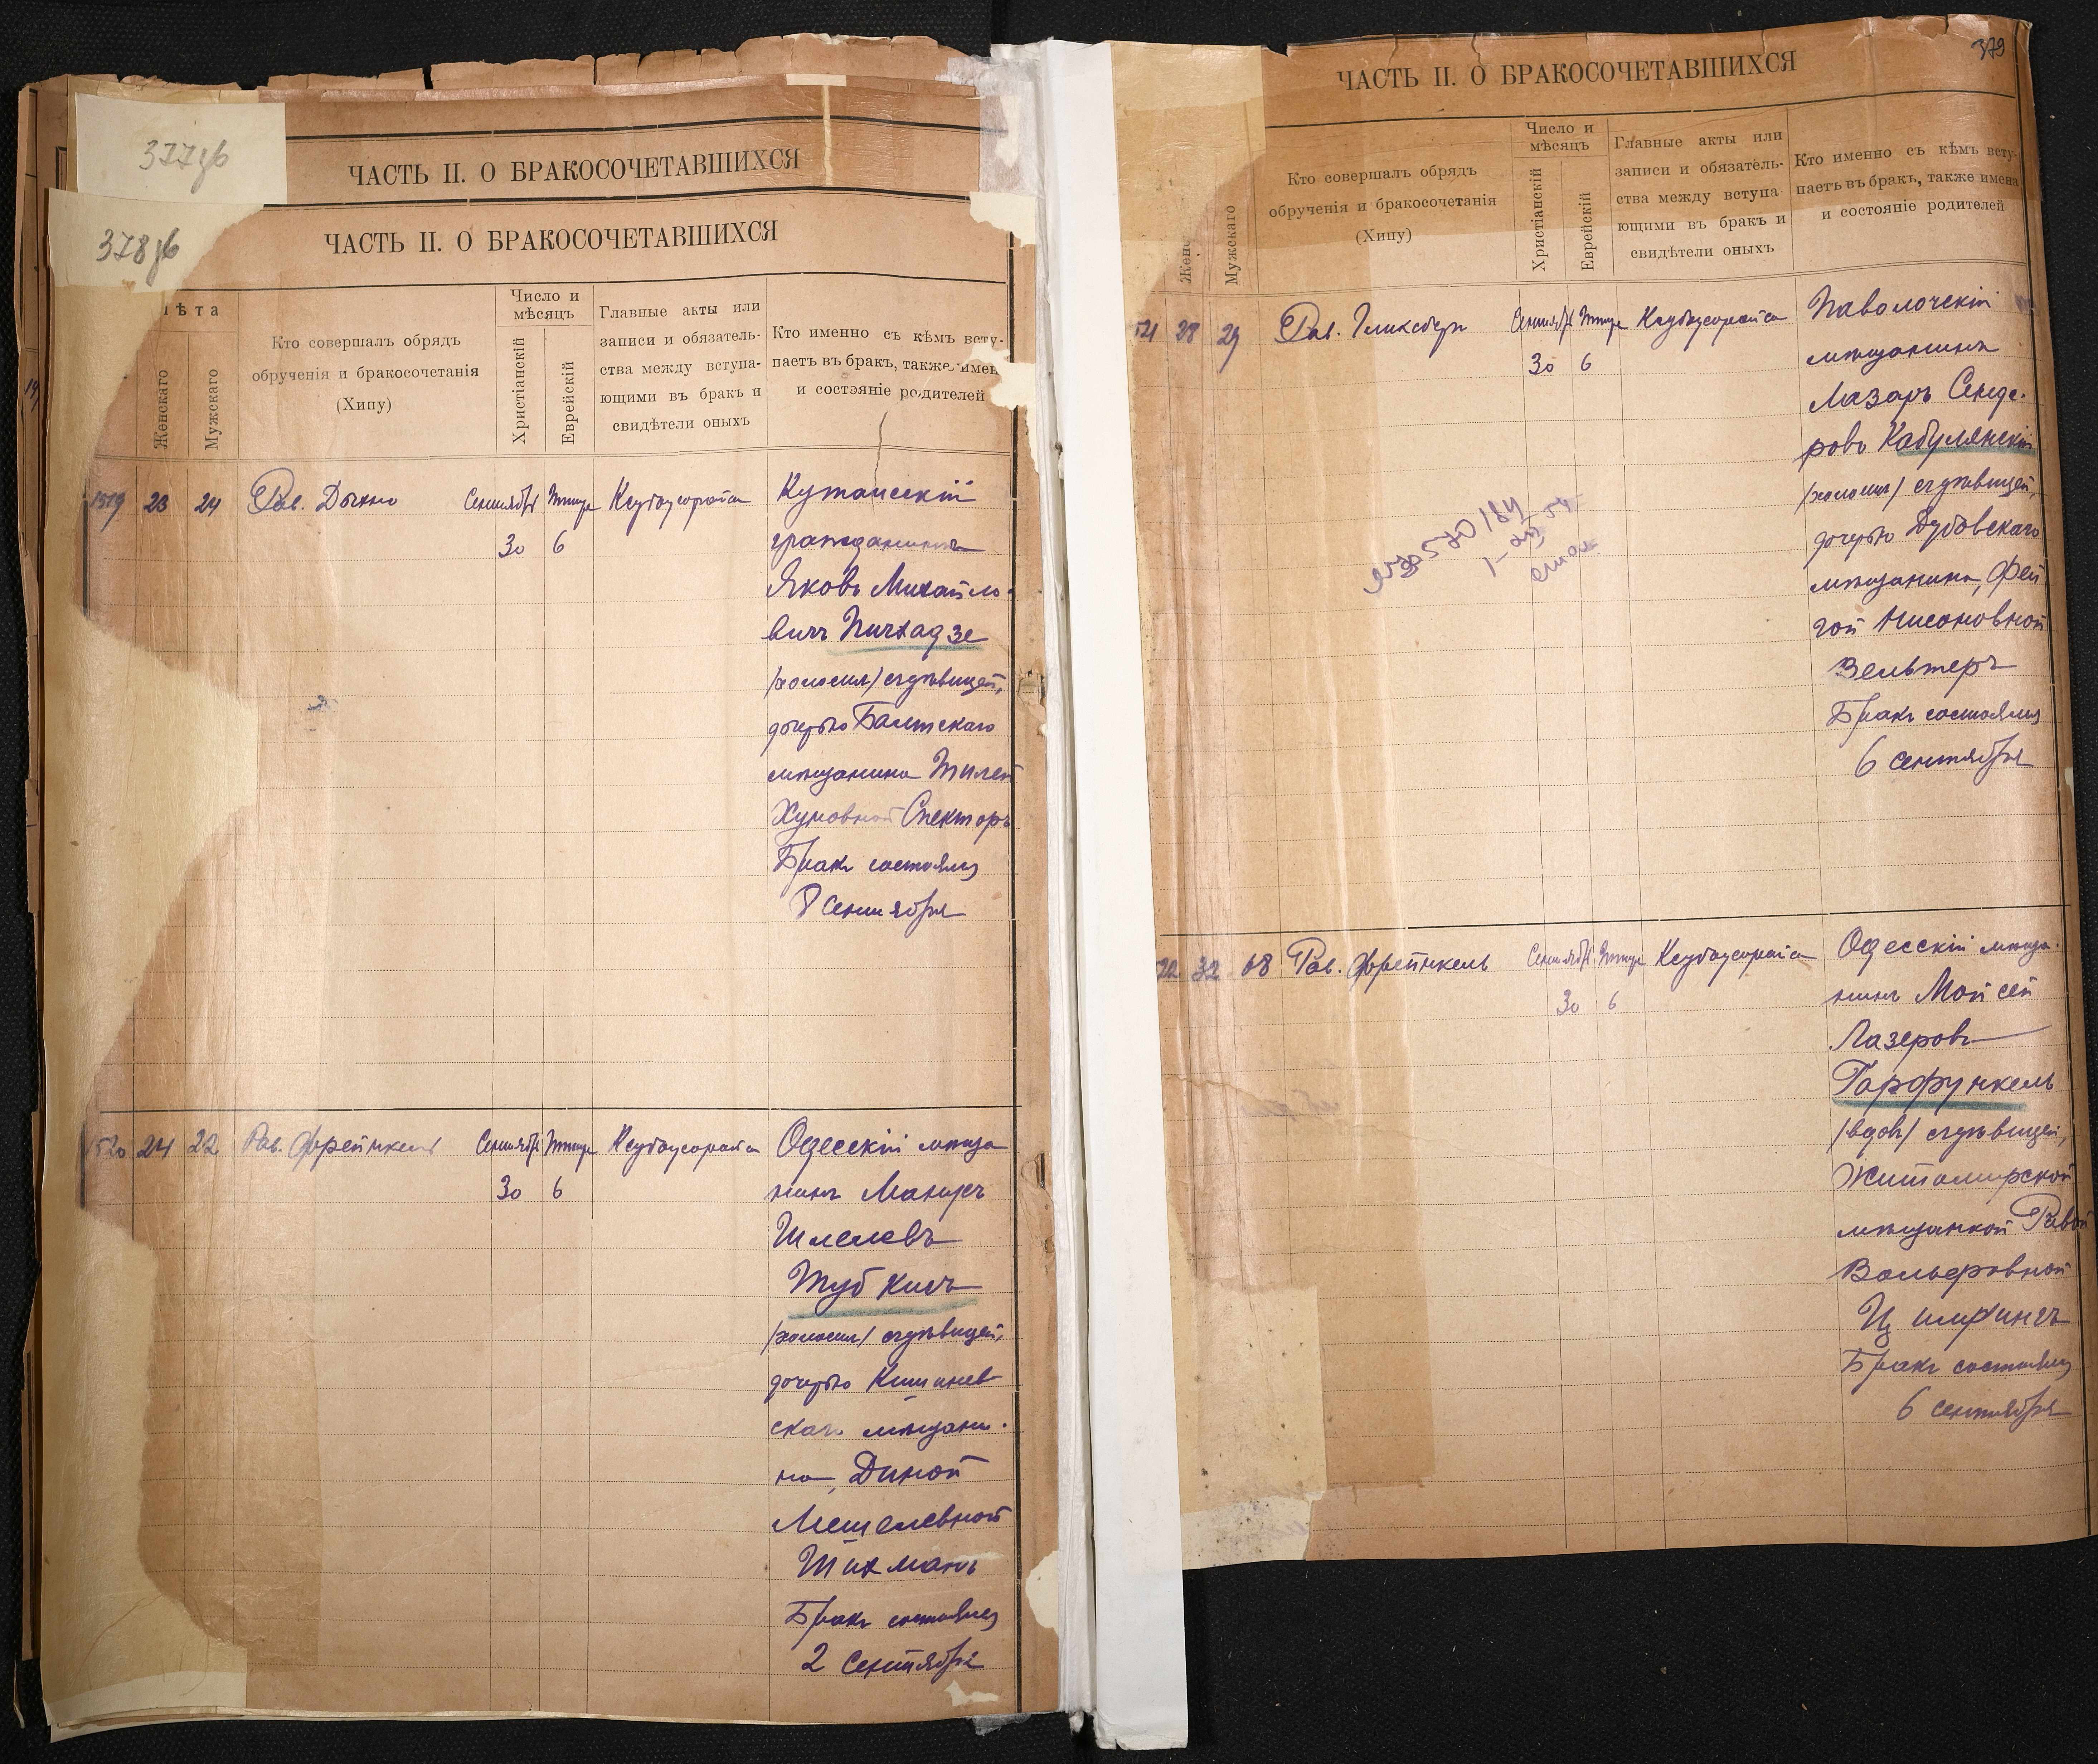 377об
ЧАСТЬ II. О БРАКОСОЧЕТАВШИХСЯ
378об
ЧАСТЬ II. О БРАКОСОЧЕТАВШИХСЯ
ѣта
Женскаго
Мужскаго
Кто совершалъ обрядъ
обрученія и бракосочетанія
(Хипу)
Число и
мѣсяцъ
Христіанскій
Еврейскій
Главные акты или
записи и обязатель-
ства между вступа-
ющими въ бракъ и
свидѣтели оныхъ
Кто именно съ кѣмъ всту-
паетъ въ бракъ, также имен
и состояніе родителей
1519 23 24 Рав. Дыхно Сентябр Тишри Ксубоусорайса
30 6
Кутаисскій
гражданинъ
Яковъ Михайло-
вичъ Пичхадзе
/холост/ съ дѣвицей,
дочерью Балтскаго
мѣщанина
Хуновной Спекторъ
Бракъ состоялся
8 Сентября
1520 24 22 Рав. Фрейнкель Сентябр Тишри Ксубоусорайса
30 6
Одесскій мѣща
нинъ Манусъ
Шмелевъ
Тубкисъ
/холост/ съ дѣвицей,
дочерью Кишинев
скаго мѣщани-
на, Диной
Мешелевной
Шихманъ
Бракъ состоялся
2 Сентября
379
ЧАСТЬ II. О БРАКОСОЧЕТАВШИХСЯ
Женс
Мужскаго
Кто совершалъ обрядъ
обрученія и бракосочетанія
(Хипу)
Число и
мѣсяцъ
Христіанскій
Еврейскій
Главные акты или
записи и обязатель-
ства между вступа
ющими въ бракъ и
свидѣтели оныхъ
Кто именно съ кѣмъ всту-
паетъ въ бракъ, также имена
и состояніе родителей
21 28 29 Рав. Гликсберг Сентябр Тишри Ксубоусорайса
30 6
Паволочскій
мѣщанинъ
Лазарь Сенде-
ровъ Кабулянскій
/холост/ съ дѣвицей,
дочерью Дубовскаго
мѣщанина, Фей
гой Нисоновной
Вельтеръ
Бракъ состоялся
6 сентября
22 32 68 Рав. Фрейнкель Сентябр Тишри Ксубоусорайса
30 6
Одесскій мѣща-
нинъ Мойсей
Лазеровъ
Гарфункель
/вдов/ съ дѣвицей,
Житомирской
мѣщанкой
Вольфовной
Бракъ состоялся
6 сентября